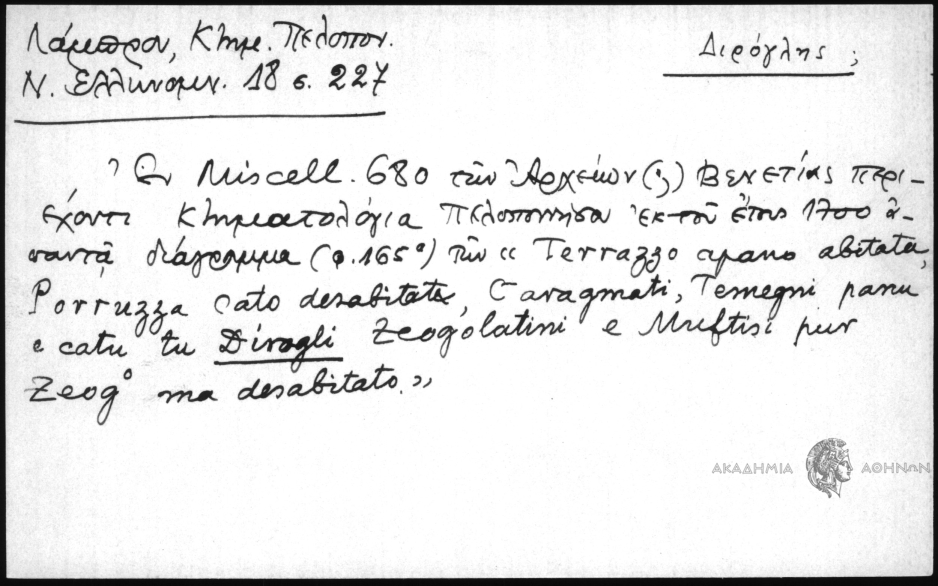 Λάμπρου, Κτημ. Πελοπον.
Ν. Ελληνομν. 18 σ. 227
Διρόγλης ;
Ἐν Miscell. 680 τῶν Ἀρχείων (;) Βενετίας περι-
έχοντι κτηματολόγια Πελοποννήσου ἐκ τοῦ ἔτους 1700 ἀ-
παντᾷ διάγραμμα (φ. 165α) τῶν « Terrazzo apano abitata,
Porruzza cato desabitata, Caragmati, Temegni panu
e catu tu Dirogli Zeogolatini e Muftisi pur
Zeog° ma desabitato. »
ΑΚΑΔΗΜΙΑ ΑΘΗΝΩΝ